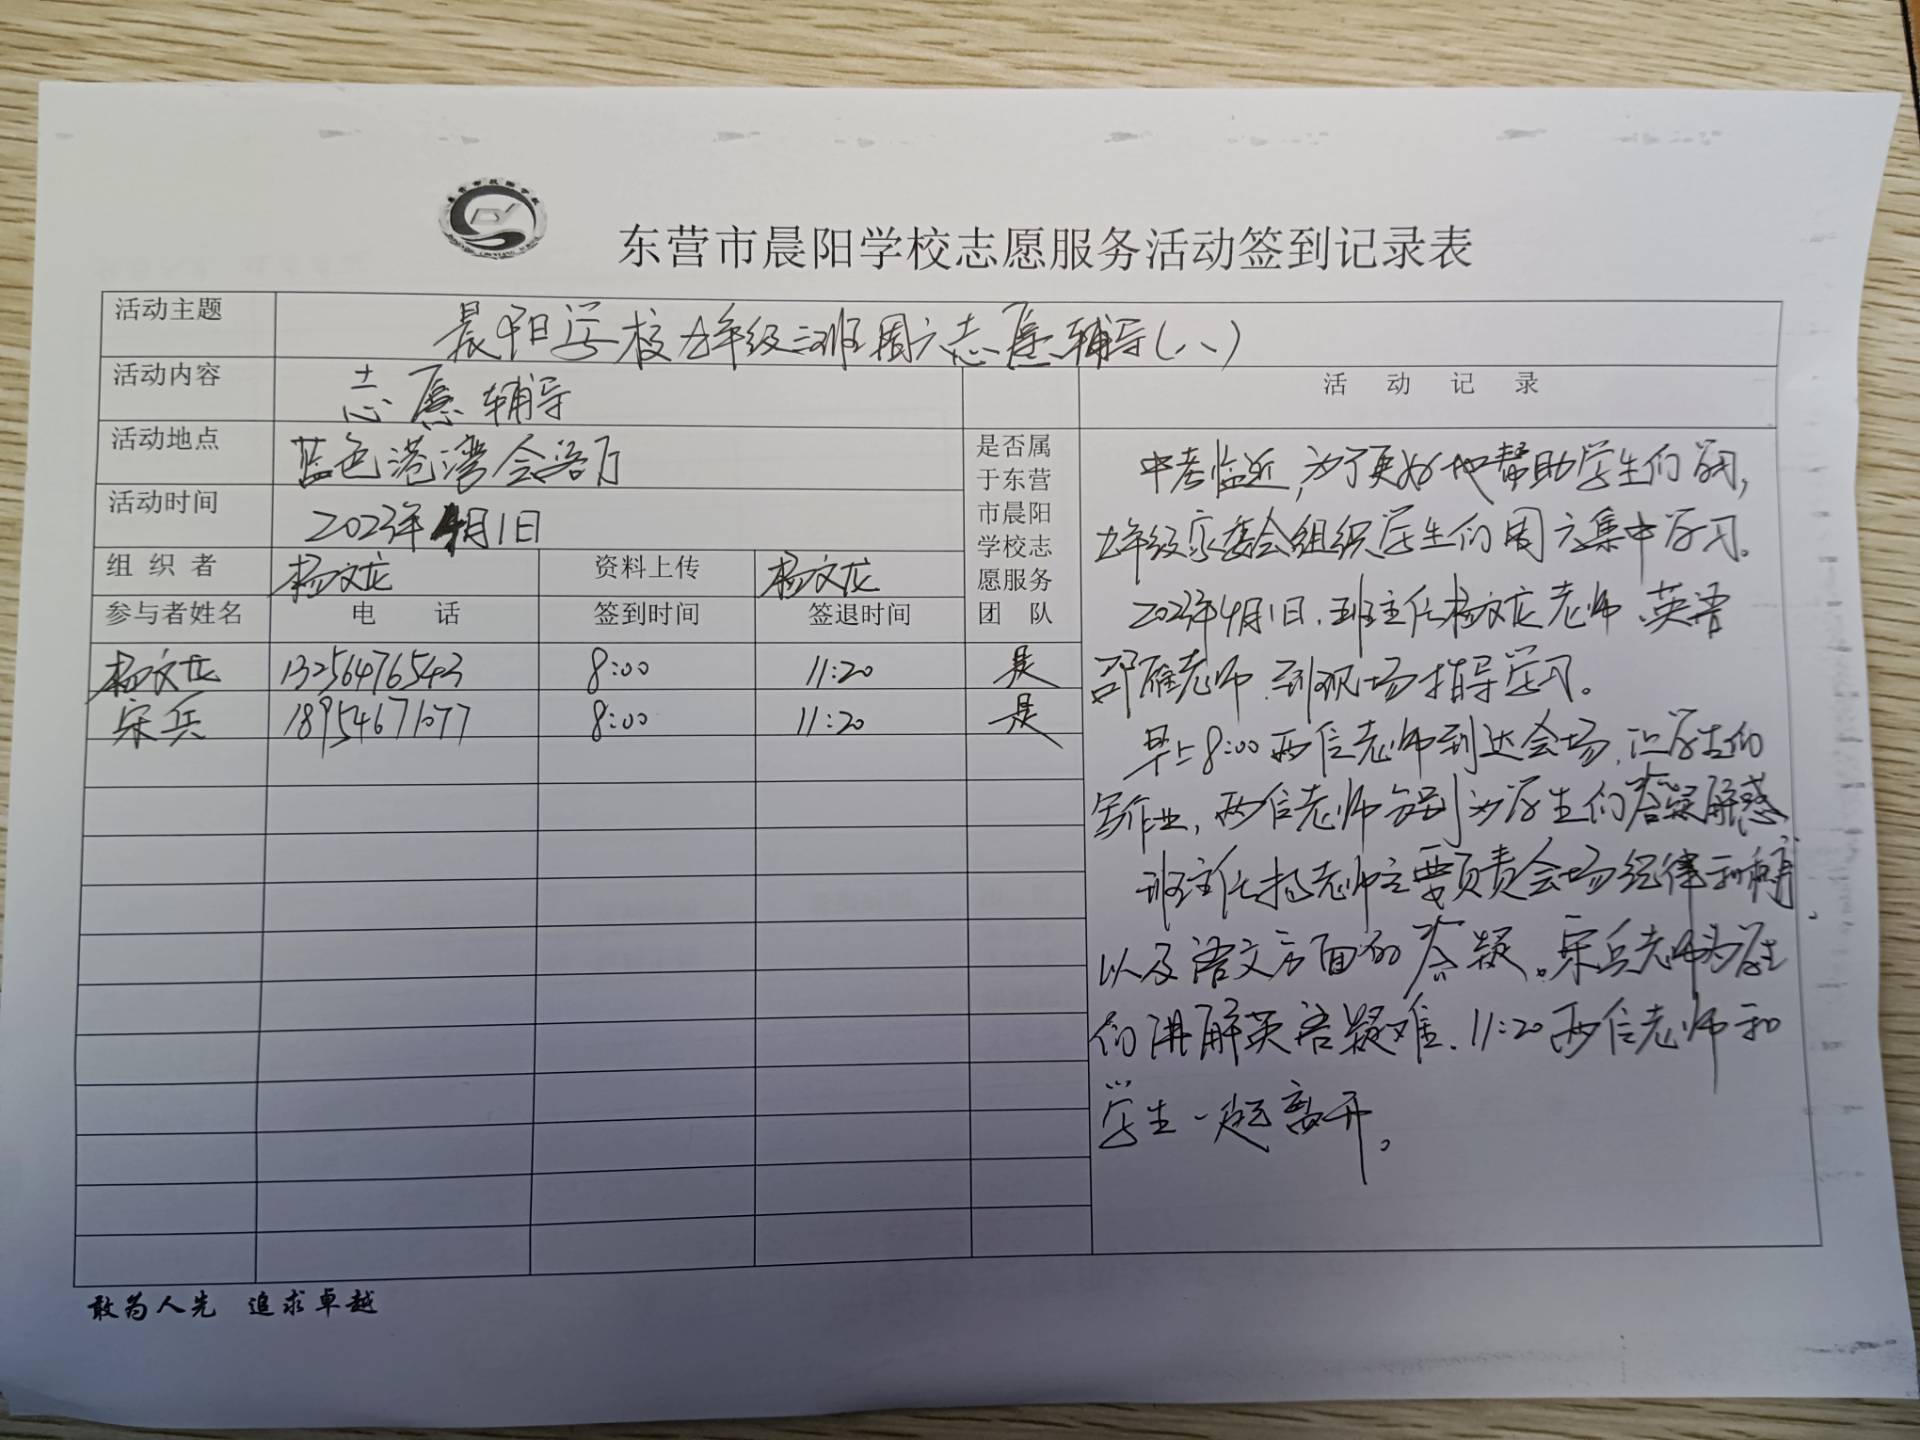 东营市晨阳学校志愿服务活动签到记录表
活动主题 晨阳学校九年级三班周六志愿辅导(八)
活动内容 志愿辅导
活动记录
活动地点 蓝色港湾会客厅
活动时间 2023年4月1日
组织者 杨文龙 资料上传 杨文龙
是否属
于东营
市晨阳
学校志
愿服务
团队
参与者姓名 电话 签到时间 签退时间
杨文龙 13256476543 8:00 11:20 是
宋兵 18954671077 8:00 11:20 是
中考临近,为了更好地帮助学生们学习,
九年级家委会组织学生们周六集中学习。
2023年4月1日,班主任杨文龙老师、英语
老师到现场指导学习。
早上8:00两位老师到达会场,让学生们
写作业,两位老师分别为学生们答疑解惑,
班主任杨老师主要负责会场纪律和
以及语文方面的答疑。宋兵老师为学生
们讲解英语疑难、11:20两位老师和
学生一起离开。
敢为人先 追求卓越